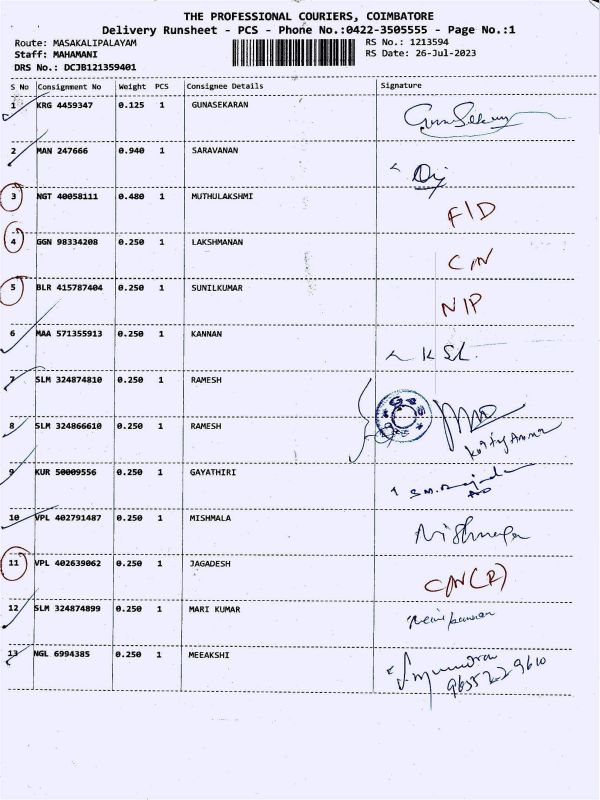 THE PROFESSIONAL COURIERS, COIMBATORE
Delivery Runsheet - PCS - Phone No.:0422-3505555 - Page No.:1
Route: MASAKALIPALAYAM RS No.: 1213594
Staff: MAHAMANI RS Date: 26-Jul-2023
DRS No.: DCJB121359401
S No Consignment No Weight PCS Consignee Details Signature
1 KRG 4459347 0.125 1 GUNASEKARAN
2 MAN 247666 0.940 1 SARAVANAN
3 NGT 40058111 0.480 1 MUTHULAKSHMI F/D
4 GGN 98334208 0.250 1 LAKSHMANAN
5 BLR 415787404 0.250 1 SUNILKUMAR N/P
6 MAA 571355913 0.250 1 KANNAN K SL.
7 SLM 324874810 0.250 1 RAMESH
8 SLM 324866610 0.250 1 RAMESH
9 KUR 50009556 0.250 1 GAYATHIRI
10 VPL 402791487 0.250 1 MISHMALA
11 VPL 402639062 0.250 1 JAGADESH
12 SLM 324874899 0.250 1 MARI KUMAR
13 NGL 6994385 0.250 1 MEEAKSHI